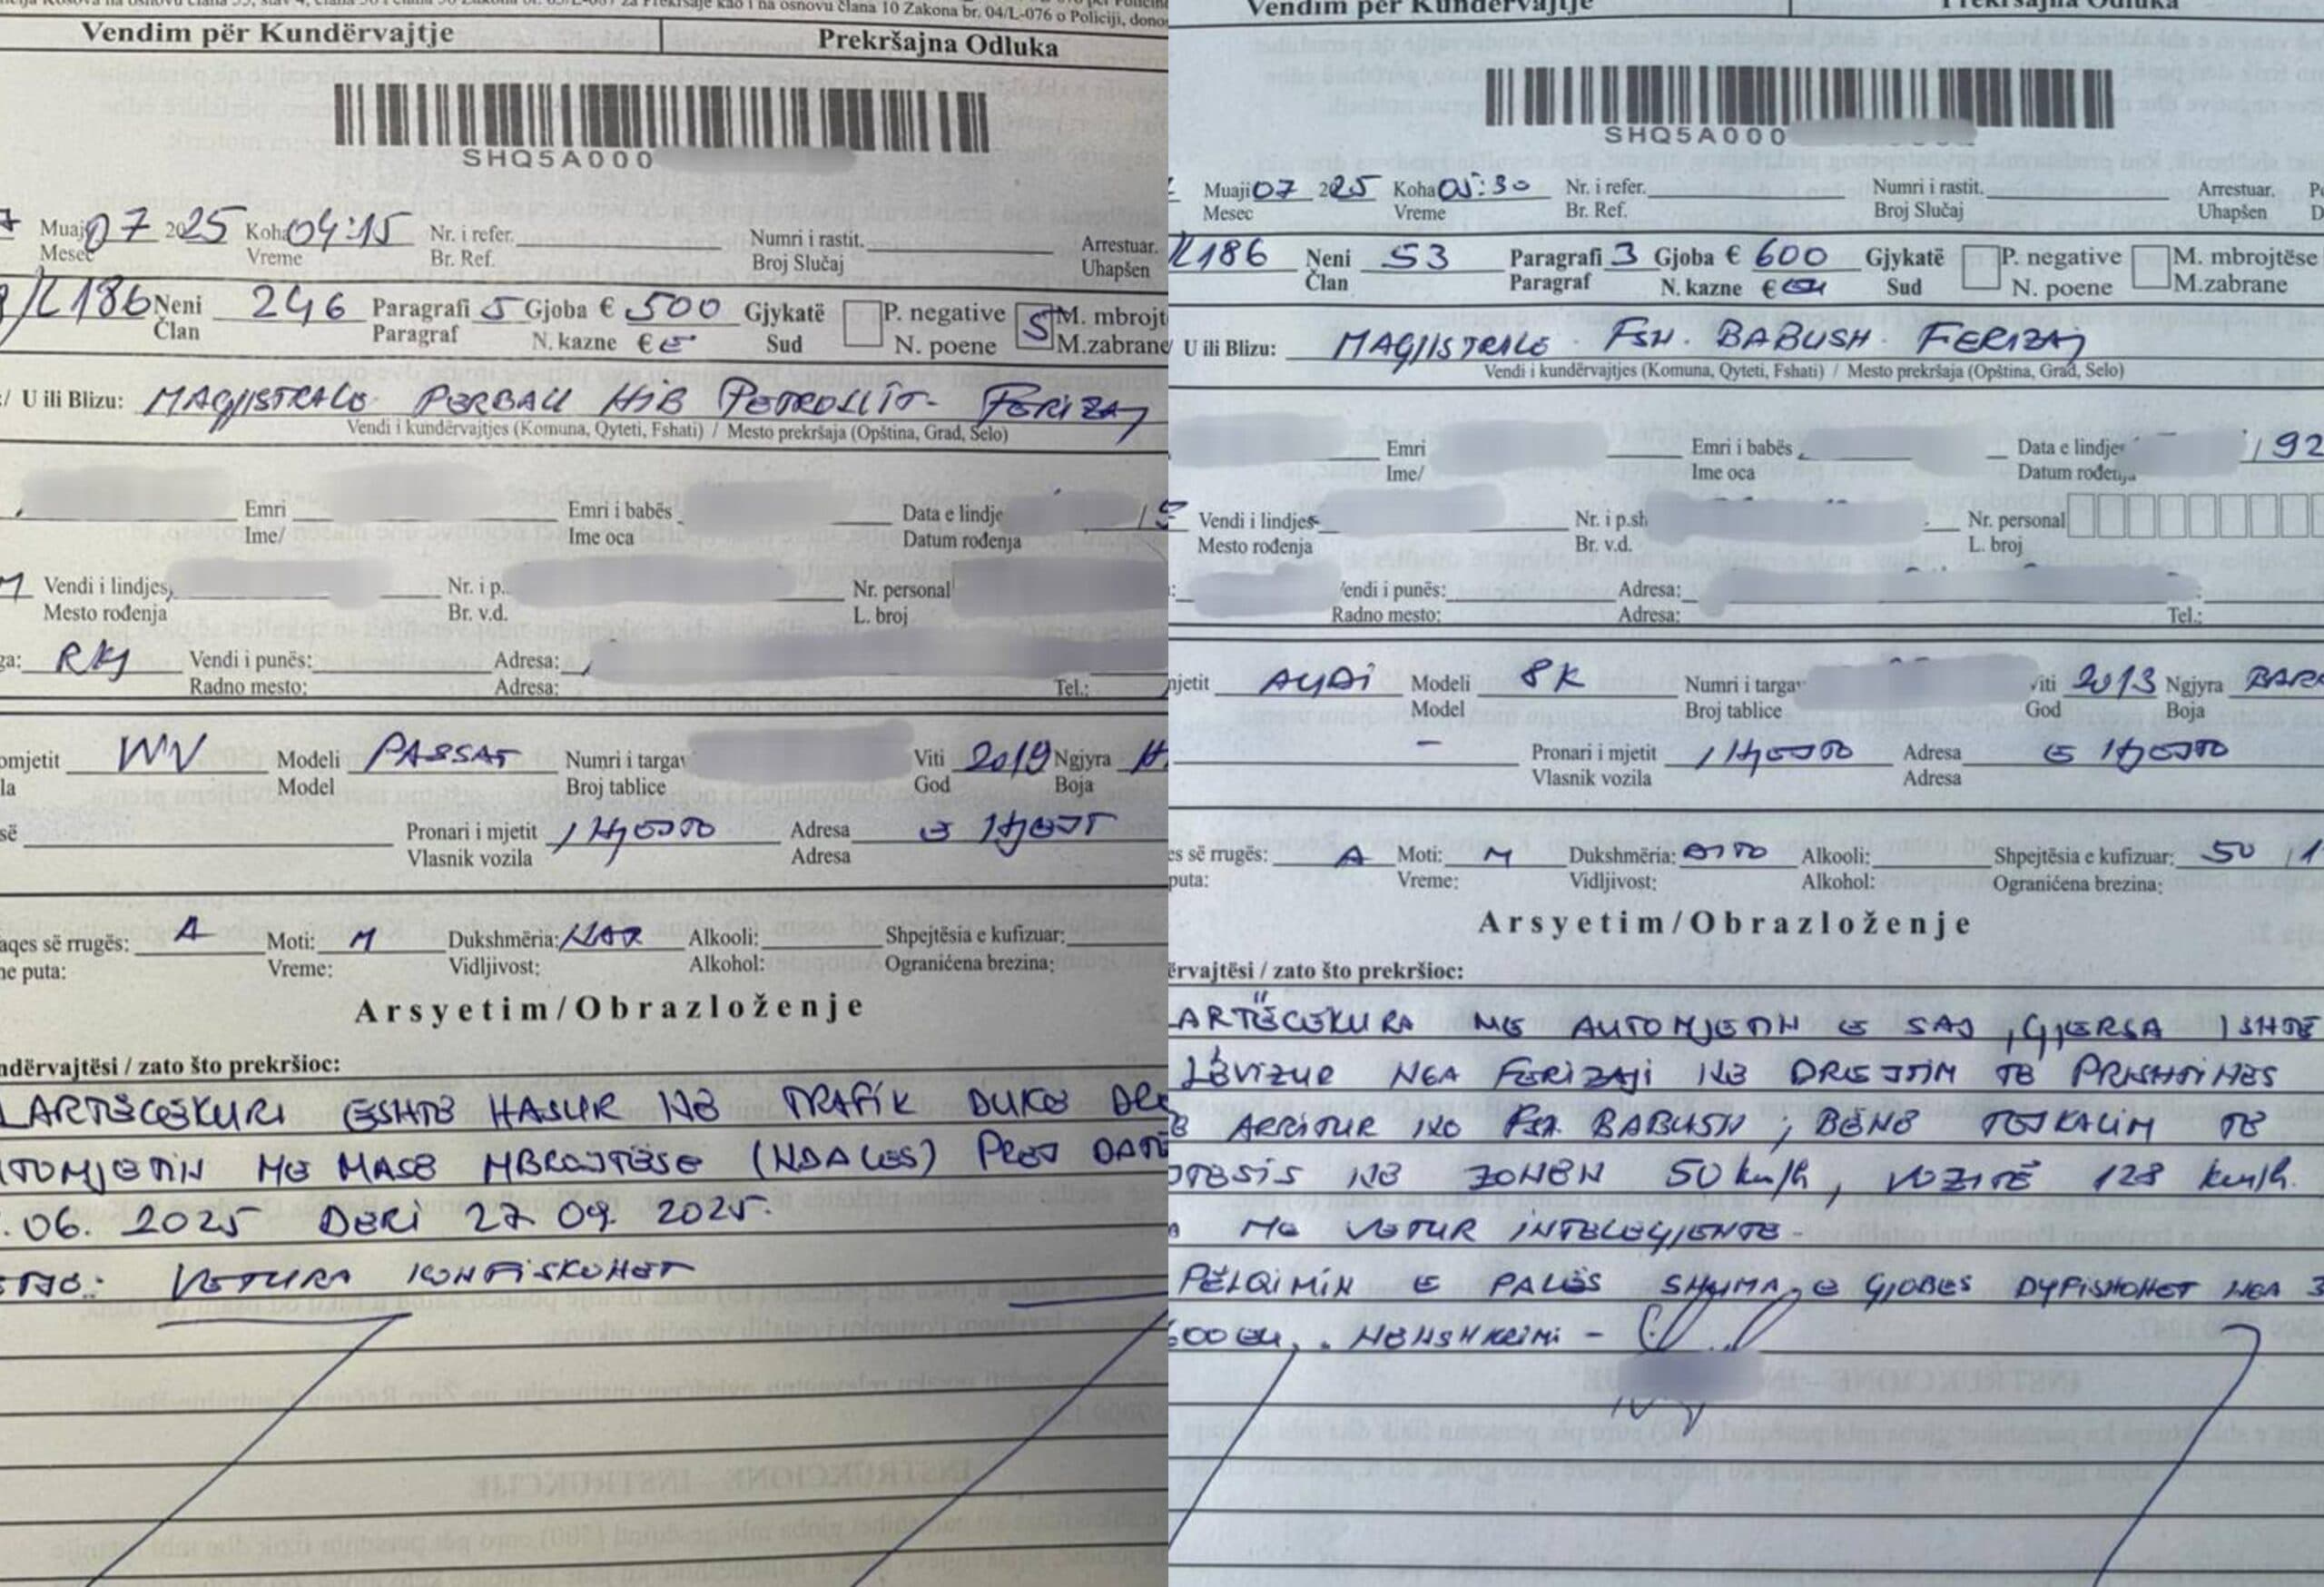 Vendim për Kundërvajtje
Prekršajna Odluka
SHQ5A000
Muaji 07 2025 Koha 04:15 Nr. i refer. Numri i rastit. Arrestuar.
Mesec Vreme Br. Ref. Broj Slučaj Uhapšen
/L186 Neni 246 Paragrafi 5 Gjoba € 500 Gjykatë P. negative 5 M. mbrojt
Član Paragraf N. kazne € Sud N. poene M.zabrane
/ U ili Blizu: MAGJISTRALE PËRBALL HIB PETROLLIT- FERIZAJ
Vendi i kundërvajtjes (Komuna, Qyteti, Fshati) / Mesto prekršaja (Opština, Grad, Selo)
Emri Emri i babës Data e lindje
Ime/ Ime oca Datum rođenja
Vendi i lindjes Nr. i p. Nr. personal
Mesto rođenja Br. v.d. L. broj
ga: RKS Vendi i punës: Adresa:
Radno mesto: Adresa: Tel.:
omjetit WV Modeli PASSAT Numri i targav Viti 2019 Ngjyra H
la Model Broj tablice God Boja
së Pronari i mjetit I NJEJTI Adresa E NJEJT
Vlasnik vozila Adresa
aqes së rrugës: A Moti: M Dukshmëria: Alkooli: Shpejtësia e kufizuar:
ne puta: Vreme: Vidljivost: Alkohol: Ograničena brezina:
Arsyetim/Obrazloženje
ndërvajtësi / zato što prekršioc:
LARTËCEKURI ËSHTË HASUR NË TRAFIK DUKE DRE
TOMJETIN ME MASË MBROJTËSE (NDALES) PREJ DATË
.06. 2025 DERI 27.09. 2025.
VETURA KONFISKOHET
Vendim për Kundërvajtje
Prekršajna Odluka
SHQ5A000
Muaji 07 2025 Koha 05:30 Nr. i refer. Numri i rastit. Arrestuar.
Mesec Vreme Br. Ref. Broj Slučaj Uhapšen
L186 Neni 53 Paragrafi 3 Gjoba € 600 Gjykatë P. negative M. mbrojtëse
Član Paragraf N. kazne € Sud N. poene M.zabrane
U ili Blizu: MAGJISTRALE FSH. BABUSH FERIZAJ
Vendi i kundërvajtjes (Komuna, Qyteti, Fshati) / Mesto prekršaja (Opština, Grad, Selo)
Emri Emri i babës Data e lindje /92
Ime/ Ime oca Datum rođenja
Vendi i lindjes Nr. i p.sh Nr. personal
Mesto rođenja Br. v.d. L. broj
Vendi i punës: Adresa:
Radno mesto: Adresa: Tel.:
mjetit AUDI Modeli 8K Numri i targav Viti 2013 Ngjyra BAR
Model Broj tablice God Boja
- Pronari i mjetit I NJEJTO Adresa E NJEJTO
Vlasnik vozila Adresa
es së rrugës: A Moti: M Dukshmëria: Alkooli: Shpejtësia e kufizuar: 50 /1
puta: Vreme: Vidljivost: Alkohol: Ograničena brezina:
Arsyetim/Obrazloženje
ërvajtësi / zato što prekršioc:
ARTËCEKURA ME AUTOMJETIN E SAJ, GJERSA ISHTE
LËVIZUR NGA FERIZAJI NË DREJTIM TË PRISHTINES
ARRITUR NE FSH. BABUSH, BËNË TEJKALIM TË
TESIS NË ZONËN 50 km/h, VOZITË 128 km/h.
ME VETUR INTELEGJENTE-
PËLQIMIN E PALËS SHUMA E GJOBËS DYFISHOHET NGA 3
600 EU, . NËNSHKRIMI -